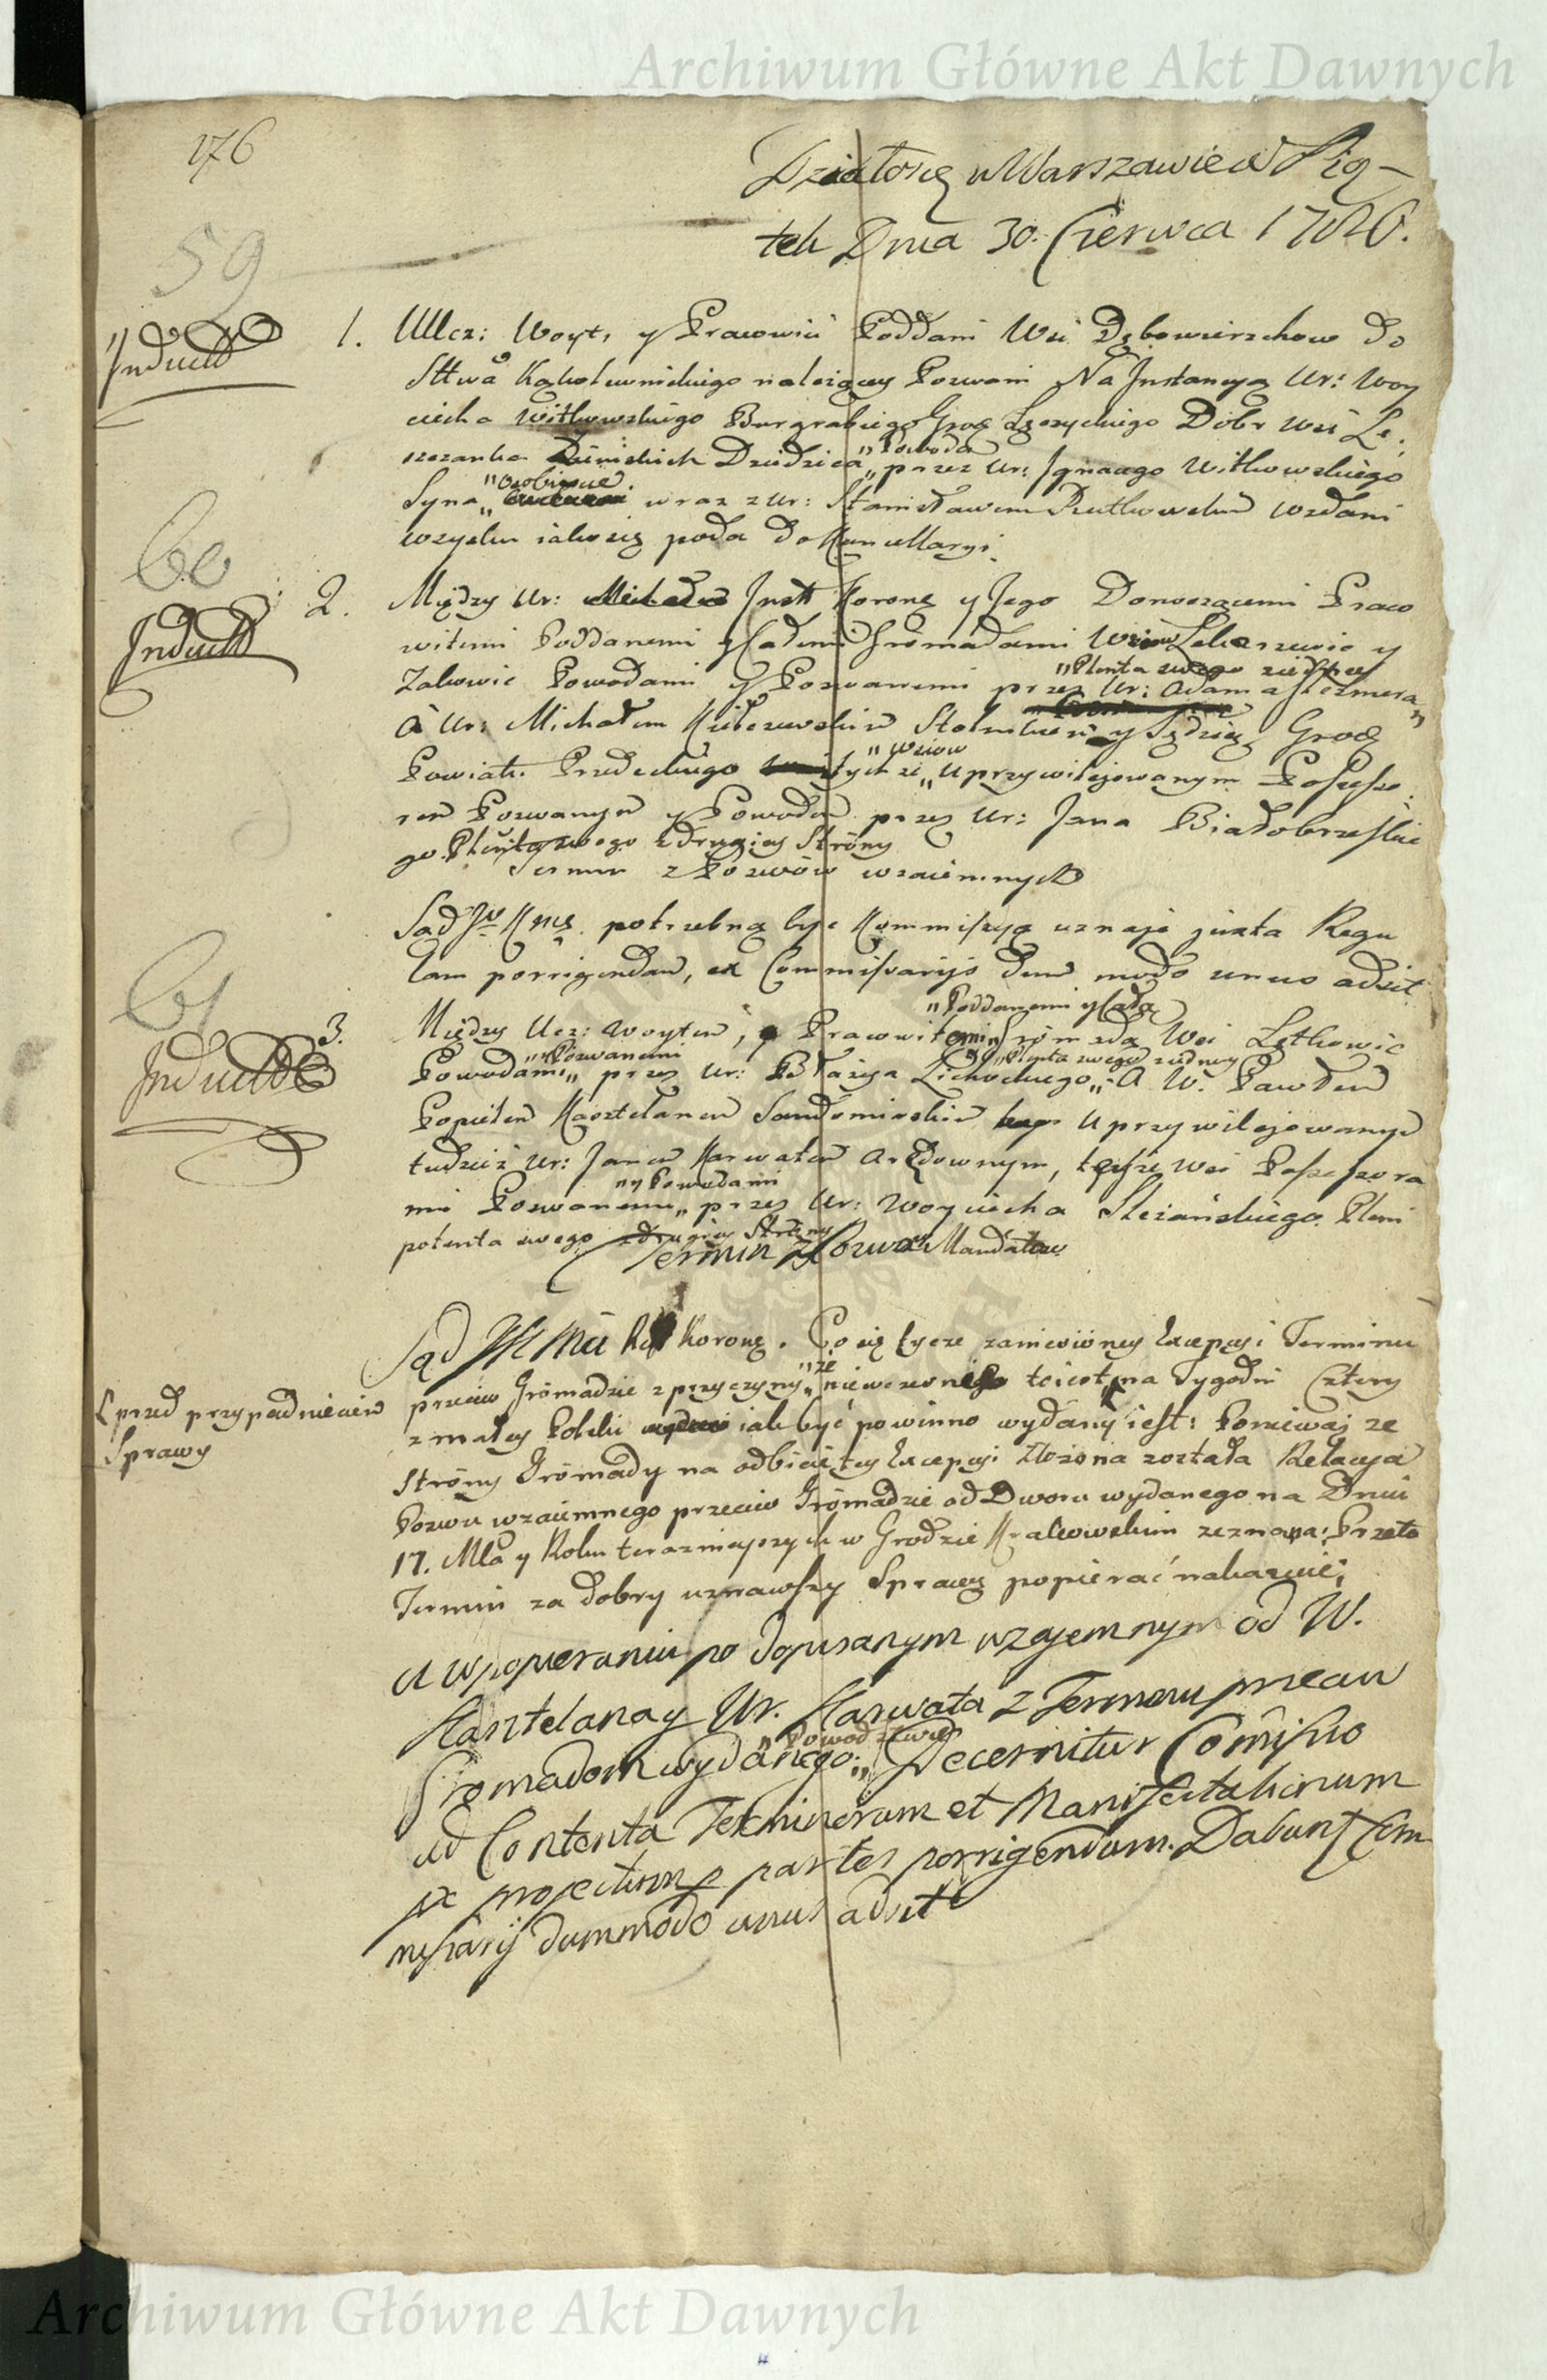 Archiwum Główne Akt Dawnych
176
Działo się w Warszawie w Pią-
tek Dnia 30. Czerwca 1786.
59
Induct
1. Ucz: Woyt, y Pracowici Poddani Wsi Dębowierzchow do
Sttwa Kąkolewnickiego należącey Pozwani Na Instancyą Ur: Woy
ciecha Witkowskiego Burgrabiego Grodz Łęczyckiego Dobr Wsi Le
szczanka Dziedzica „Powoda„ przez Ur: Ignacego Witkowskiego
Syna „osobiście. wraz z Ur: Stanisławem Rutkowskim wzdani
wzysku iako się poda do Kancellaryi.
60
Induct
2. Między Ur: Inst Koronę y Jego Donoszącemi Praco
witemi Poddanemi y Całemi Gromadami Wsiow y
Zakowic Powodami y Pozwanemi przez Ur: Adama
„Plenta swego z iedney
A Ur: Michałem Stolnikiem y Sędzią Grodz
Powiatu Przedeckiego tychże „Wsiow Uprzywilejowanym Possesso
rem Pozwanym y Powodem przez Ur: Jana Białobrzeskie
go Plenta swego z drugiey Strony
Termin z Pozwów wzaiemnych
Sąd potrzebną być Kommissyą uznaje juxta Regu
lam porrigendam, ex Commissarijs dum modo unus adsit
61
Induct
3. Między Ucz: Woytem, Pracowitemi „Poddanemi y Całą Gromadą Wsi Łętkowic
Powodami „y Pozwanemi„ przez Ur: Błażeja Lichockiego „Plenta swego z iedney„ A W. Pawłem
Popielem Kasztelanem Sandomirskim Uprzywilejowanym
tudzież Ur: Janem Karwatem Arędownym, teyże Wsi Possessora
mi Pozwanemi „y Powodami„ przez Ur: Woyciecha Sleżańskiego Pleni
potenta swego z drugiey Strony
Termin z Pozwow Mandatow
Sąd Koronę. Co się tycze zaniesióney Excepcyi Terminu
przeciw Gromadzie z przyczyny „że niewcześnie to iest na Tygodni Cztery
przed przypadnieciem
Sprawy
z małey Polski iak być powinno wydany iest: Ponieważ ze
Strony Gromady na odbicie tey Excepcyi złożona została Relacya
Pozwu wzaiemnego przeciw Gromadzie od Dworu wydanego na Dniu
17. Mca y Roku teraznieyszych w Grodzie Krakowskim zeznana: Przeto
Termin za dobry uznawszy Sprawę popierać nakazuie;
a w popieraniu po dopisanym wzajemnym od W.
Kasztelana y Ur. Karwata z Terminu przeciw
Gromadom wydanego „Powodztwie„ Decernitur Comissio
ad Contenta Terminorum et Manifestationum
ex projectum p partes porrigendum. Dabunt Com
missarij dummodo unus adsit
Archiwum Główne Akt Dawnych